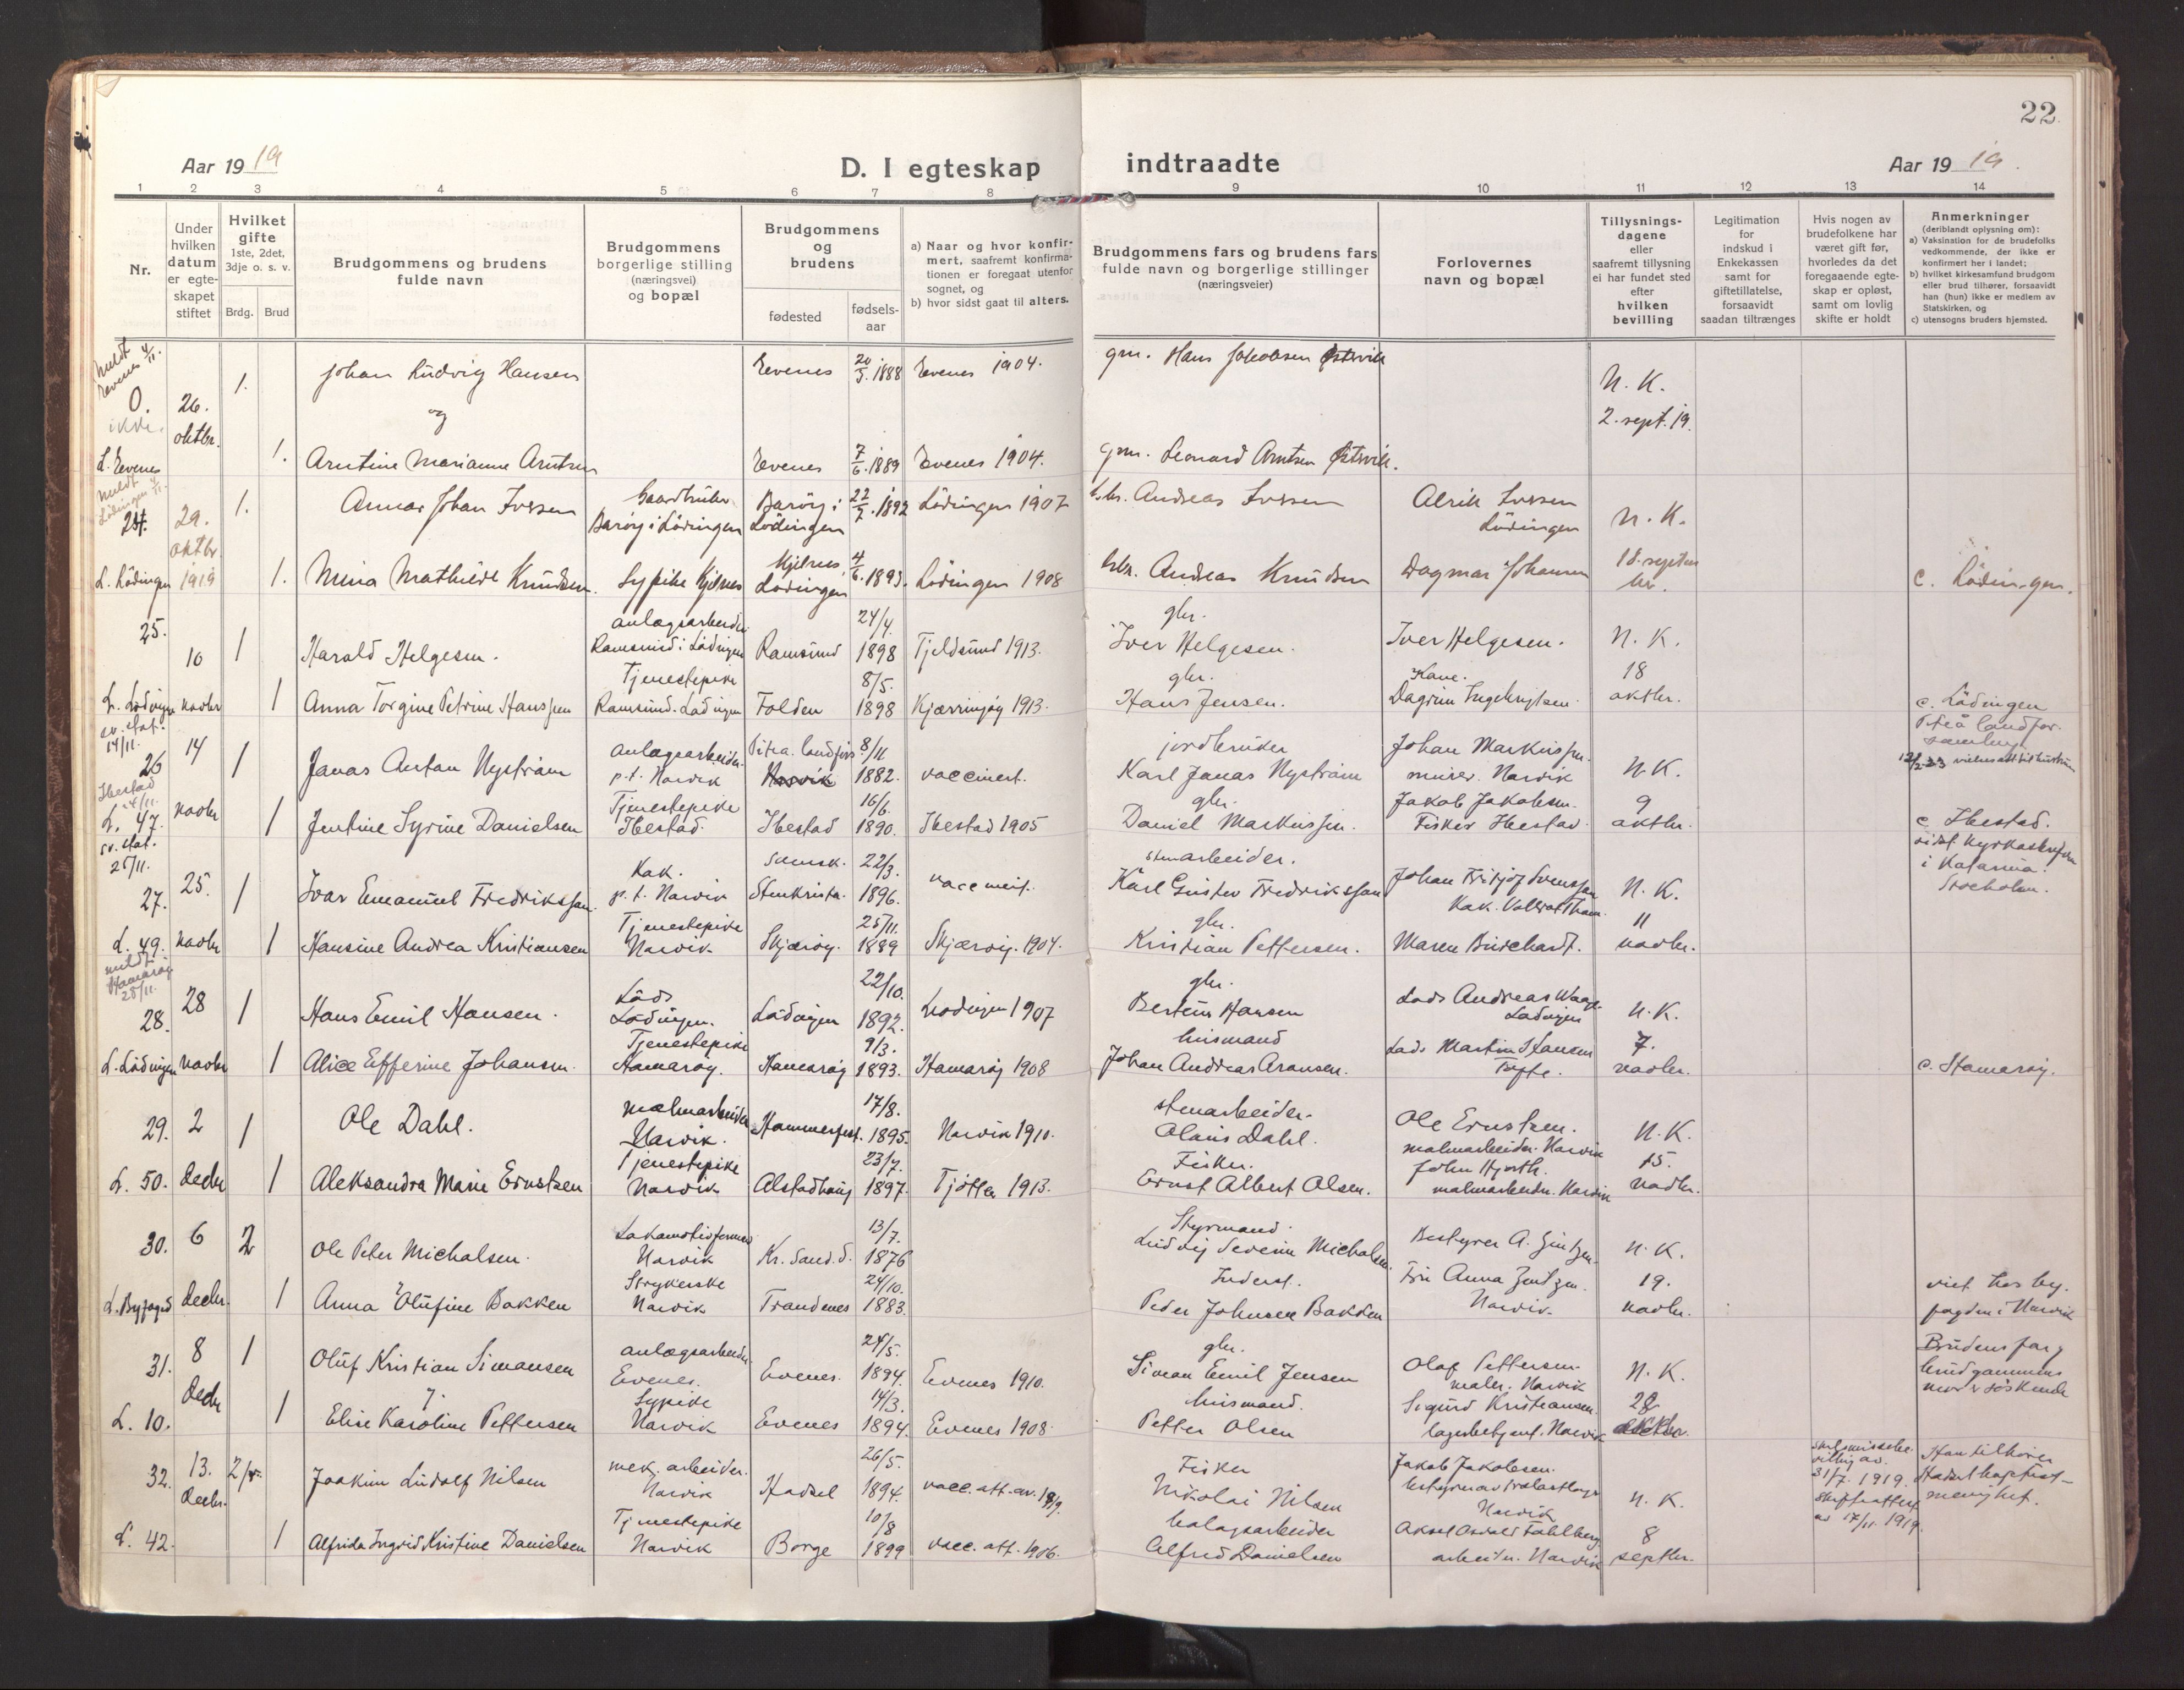 22.
Aar 1919
D. I egteskap indtraadte
Aar 1919.
1 2 3 4 5 6 7 8 9 10 11 12 13 14
Nr.
Under hvilken datum er egte-skapet stiftet
Hvilket gifte
1ste, 2det, 3dje o. s. v.
Brdg. Brud
Brudgommens og brudens fulde navn
Brudgommens borgerlige stilling (næringsvei) og bopæl
Brudgommens og brudens
fødested
fødsels-aar
a) Naar og hvor konfir-mert, saafremt konfirma-tionen er foregaat utenfor sognet, og
b) hvor sidst gaat til alters.
Brudgommens fars og brudens fars fulde navn og borgerlige stillinger (næringsveier)
Forlovernes navn og bopæl
Tillysnings-dagene eller saafremt tillysning ei har fundet sted efter hvilken bevilling
Legitimation for indskud i Enkekassen samt for giftetillatelse, forsaavidt saadan tiltrænges
Hvis nogen av brudefolkene har været gift før, hvorledes da det foregaaende egte-skap er opløst, samt om lovlig skifte er holdt
Anmerkninger
(deriblandt oplysning om):
a) Vaksination for de brudefolks vedkommende, der ikke er konfirmert her i landet;
b) hvilket kirkesamfund brudgom eller brud tilhører, forsaavidt han (hun) ikke er medlem av Statskirken, og
c) utensogns bruders hjemsted.
meldt Evenes 4/11.
0. ikke. 26. oktbr. 1. Johan Ludvig Hansen Evenes 20/5. 1888 Evenes 1904. gm. Hans Jakobsen Østervik N. K. 2. sept. 19.
og
L. Evenes 1. Arntine Marianne Arntsen Evenes 7/6. 1889 Evenes 1904. gm. Leonard Arntsen Østervik.
meldt Lødingen 4/11.
24. 29. oktbr 1919 1. Annar Johan Ivssen Gaardbruker Barøy i Lödingen Barøy i Lödingen 22/7. 1892 Lödingen 1907 Andreas Ivssen Alrik Ivssen Lödingen N. K.
L. Lödingen 1. Mina Mathilde Knudsen. Sypike Kjelnes Kjelnes, Lödingen 4/6. 1893. Lödingen 1908 Andreas Knudsen Dagmar Johansen 18. septem br. c. Lödingen.
25. 10 1 Harald Helgesen. anlægsarbeider Ramsund i Lödingen Ramsund 24/4. 1898 Tjeldsund 1913. gbr. Iver Helgesen. Iver Helgesen. N. K.
L. Lödingen novbr 1 Anna Torgine Petrine Hanssen Tjenestepike Ramsund. Lödingen Folden 8/5. 1898 Kjærringöy 1913. gbr. Hans Jensen. Kone. Dagrun Ingebrigtsen. 18 oktbr. c. Lödingen
sv. stat. 14/11.
26 14 1 Jonas Anton Nyström anlægsarbeider. p.t. Narvik Pitea. landfors. Narvik 8/11 1882. vaccinert. jordbruker Karl Jonas Nyström Johan Markussen murer. Narvik N. K. Piteå landfor-samling
Ibestad 14/11.
L. 47. novbr 1 Jentine Syrine Danielsen Tjenestepike Ibestad. Ibestad 16/6. 1890. Ibestad 1905 gbr. Daniel Markussen. Jakob Jakobsen. Fisker Ibestad. 9 oktbr. c Ibestad.
sv. stat. 25/11.
27. 25. 1 Ivar Emanuel Fredriksson. Kok. p.t. Narvik Svensk. Stenkrista. 22/3. 1896. vaccinert. stenarbeider. Karl Gustav Fredriksson Johan Fritjof Svensson Kok. N. K. i Katarina. Stocholm.
L. 49. novbr 1 Hansine Andrea Kristiansen Tjenestepike Narvik Skjærøy. 25/11. 1889 Skjærøy. 1904. gbr. Kristian Pettersen. Maren Burchardt. 11 novbr.
meldt Hamarøy 28/11.
28. 28 1 Hans Emil Hansen. Lods Lödingen. Lödingen 22/10. 1892. Lodingen 1907 gbr. Hansen Lods Andreas Waage Lodingen N. K.
L. Lödingen novbr 1 Alice Efferine Johansen. Tjenestepike Hamarøy. Hamarøy 9/3. 1893. Hamarøy 1908 husmand Johan Andreas Aronsen. Lods Martin Hansen Tofte. 7. novbr. c. Hamarøy.
29. 2 1 Ole Dahl. malmarbeider Narvik. Hammerfest. 17/8. 1895. Narvik 1910. stenarbeider. Olaus Dahl. Ole Ernstsen. malmarbeider. Narvik N. K.
L. 50. decbr 1 Aleksandra Marie Ernstsen Tjenestepike Narvik Alstadhaug 23/7. 1897. Tjötta 1913. Fisker. Ernst Albert Olsen. John Hjorth. malmarbeider. Narvik 15. novbr.
30. 6 2 Ole Peter Michalsen. Lokomotivformand Narvik Kr. Sand. S. 13/7. 1876 Styrmand. Ludvig Severin Michalsen. Bestyrer A. Gintzen. N. K.
L. Byfoged decbr. 1 Anna Olufine Bakken Strykerske Narvik Trandenes 24/10. 1883. Inderst. Peder Johnsen Bakken Fru Anna Narvik. 19. novbr. viet hos by-fogden i Narvik
31. 8 1 Oluf Kristian Simonsen anlægsarbeider. Evenes. Evenes. 24/5. 1894. Evenes 1910. gbr. Simon Emil Jensen Olaf Pettersen. maler. Narvik N. K. Brudens far og brudgommens mor er söskende
L. 10. decbr 1 Elise Karoline Pettersen Sypike Narvik Evenes 14/3. 1894. Evenes 1908. husmand. Petter Olsen Sigurd Kristiansen. lagerbetjent. Narvik 28
32. 13. decbr. 2 Joakim Ludolf Nilsen mek. arbeider. Narvik Hadsel 26/5. 1894. vacc. att. av. Fisker Nikolai Nilsen Jakob Jakobsen. Narvik N. K. skilsmissebe-villing av. 31/7. 1919. skifteattest av 17/11. 1919. Han tilhører Hadsel baptist-menighet.
L. 42. 1 Alfrida Ingrid Kristine Danielsen Tjenestepike Narvik Borge 10/8 1899 vacc. att. 1906. Alfred Danielsen Aksel Fahlberg. arbeider. Narvik 8 septbr.